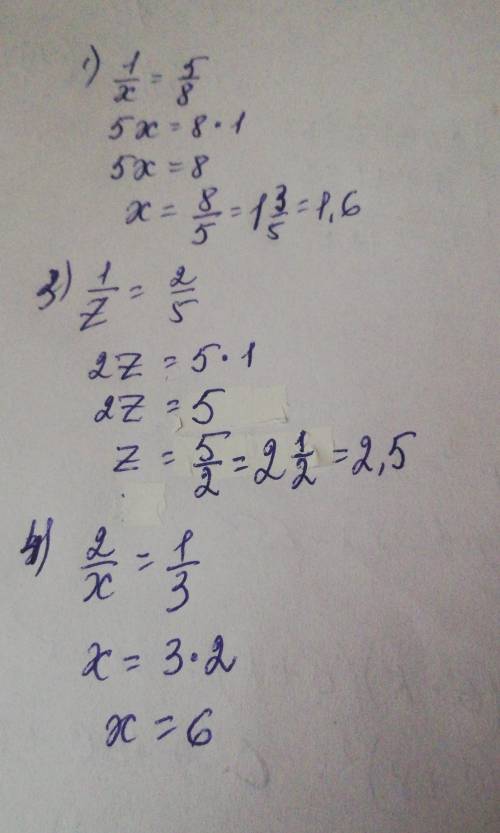 1) 1/x = 5/8
5x = 8 · 1
5x = 8
x = 8/5 = 1 3/5 = 1,6
3) 1/z = 2/5
2z = 5 · 1
2z = 5
z = 5/2 = 2 1/2 = 2,5
4) 2/x = 1/3
x = 3 · 2
x = 6